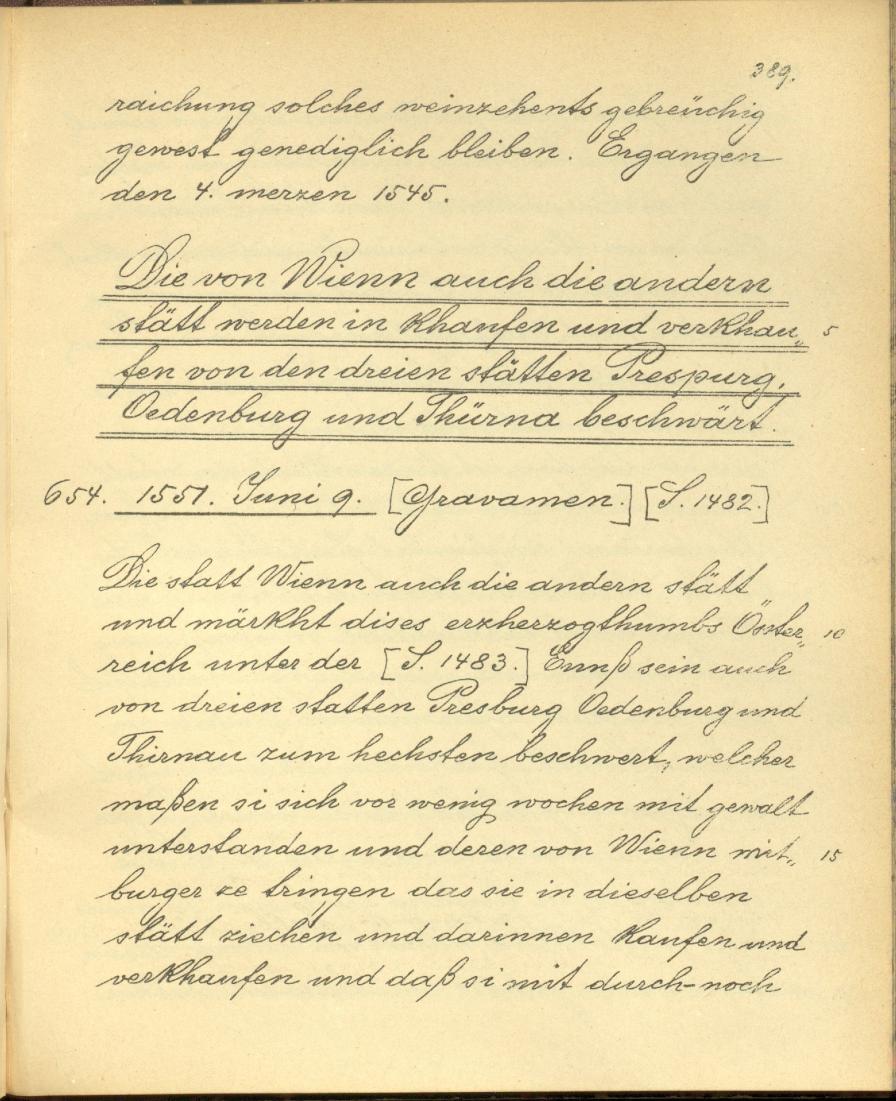 389.
raichung solches weinzehents gebreüchig
gewest genediglich bleiben. Ergangen
den 4. merzen 1545.
Die von Wienn auch die andern
stätt werden in khaufen und verkhau„ 5
fen von den dreien stätten Prespurg,
Oedenburg und Thürna beschwärt.
654. 1551. Juni 9. [Gravamen.] [S. 1482.]
Die statt Wienn auch die andern stätt
und märkht dises erzherzogthumbs Öster„ 10
reich unter der [S. 1483.] Ennß sein auch
von dreien statten Presburg Oedenburg und
Thirnau zum hechsten beschwert, welcher
maßen si sich vor wenig wochen mit gewalt
unterstanden und deren von Wienn mit„ 15
burger ze bringen das sie in dieselben
stätt ziechen und darinnen kaufen und
verkhaufen und daß si mit durch-noch